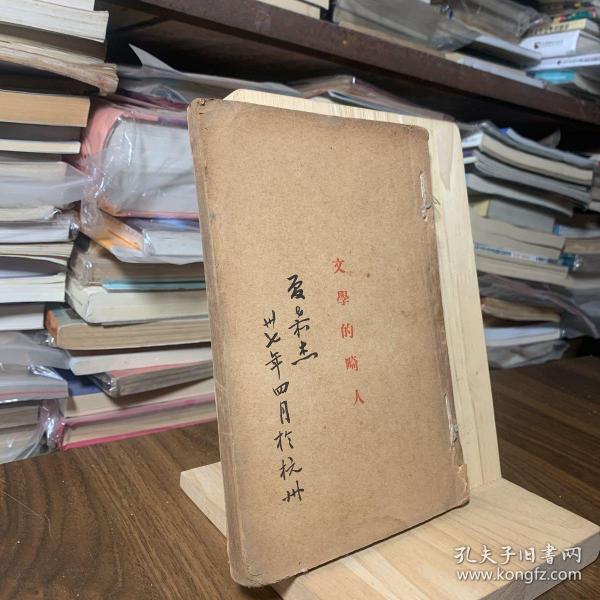 文學的畸人
夏承杰
卅七年四月於杭州
孔夫子旧书网
www.kongfz.com